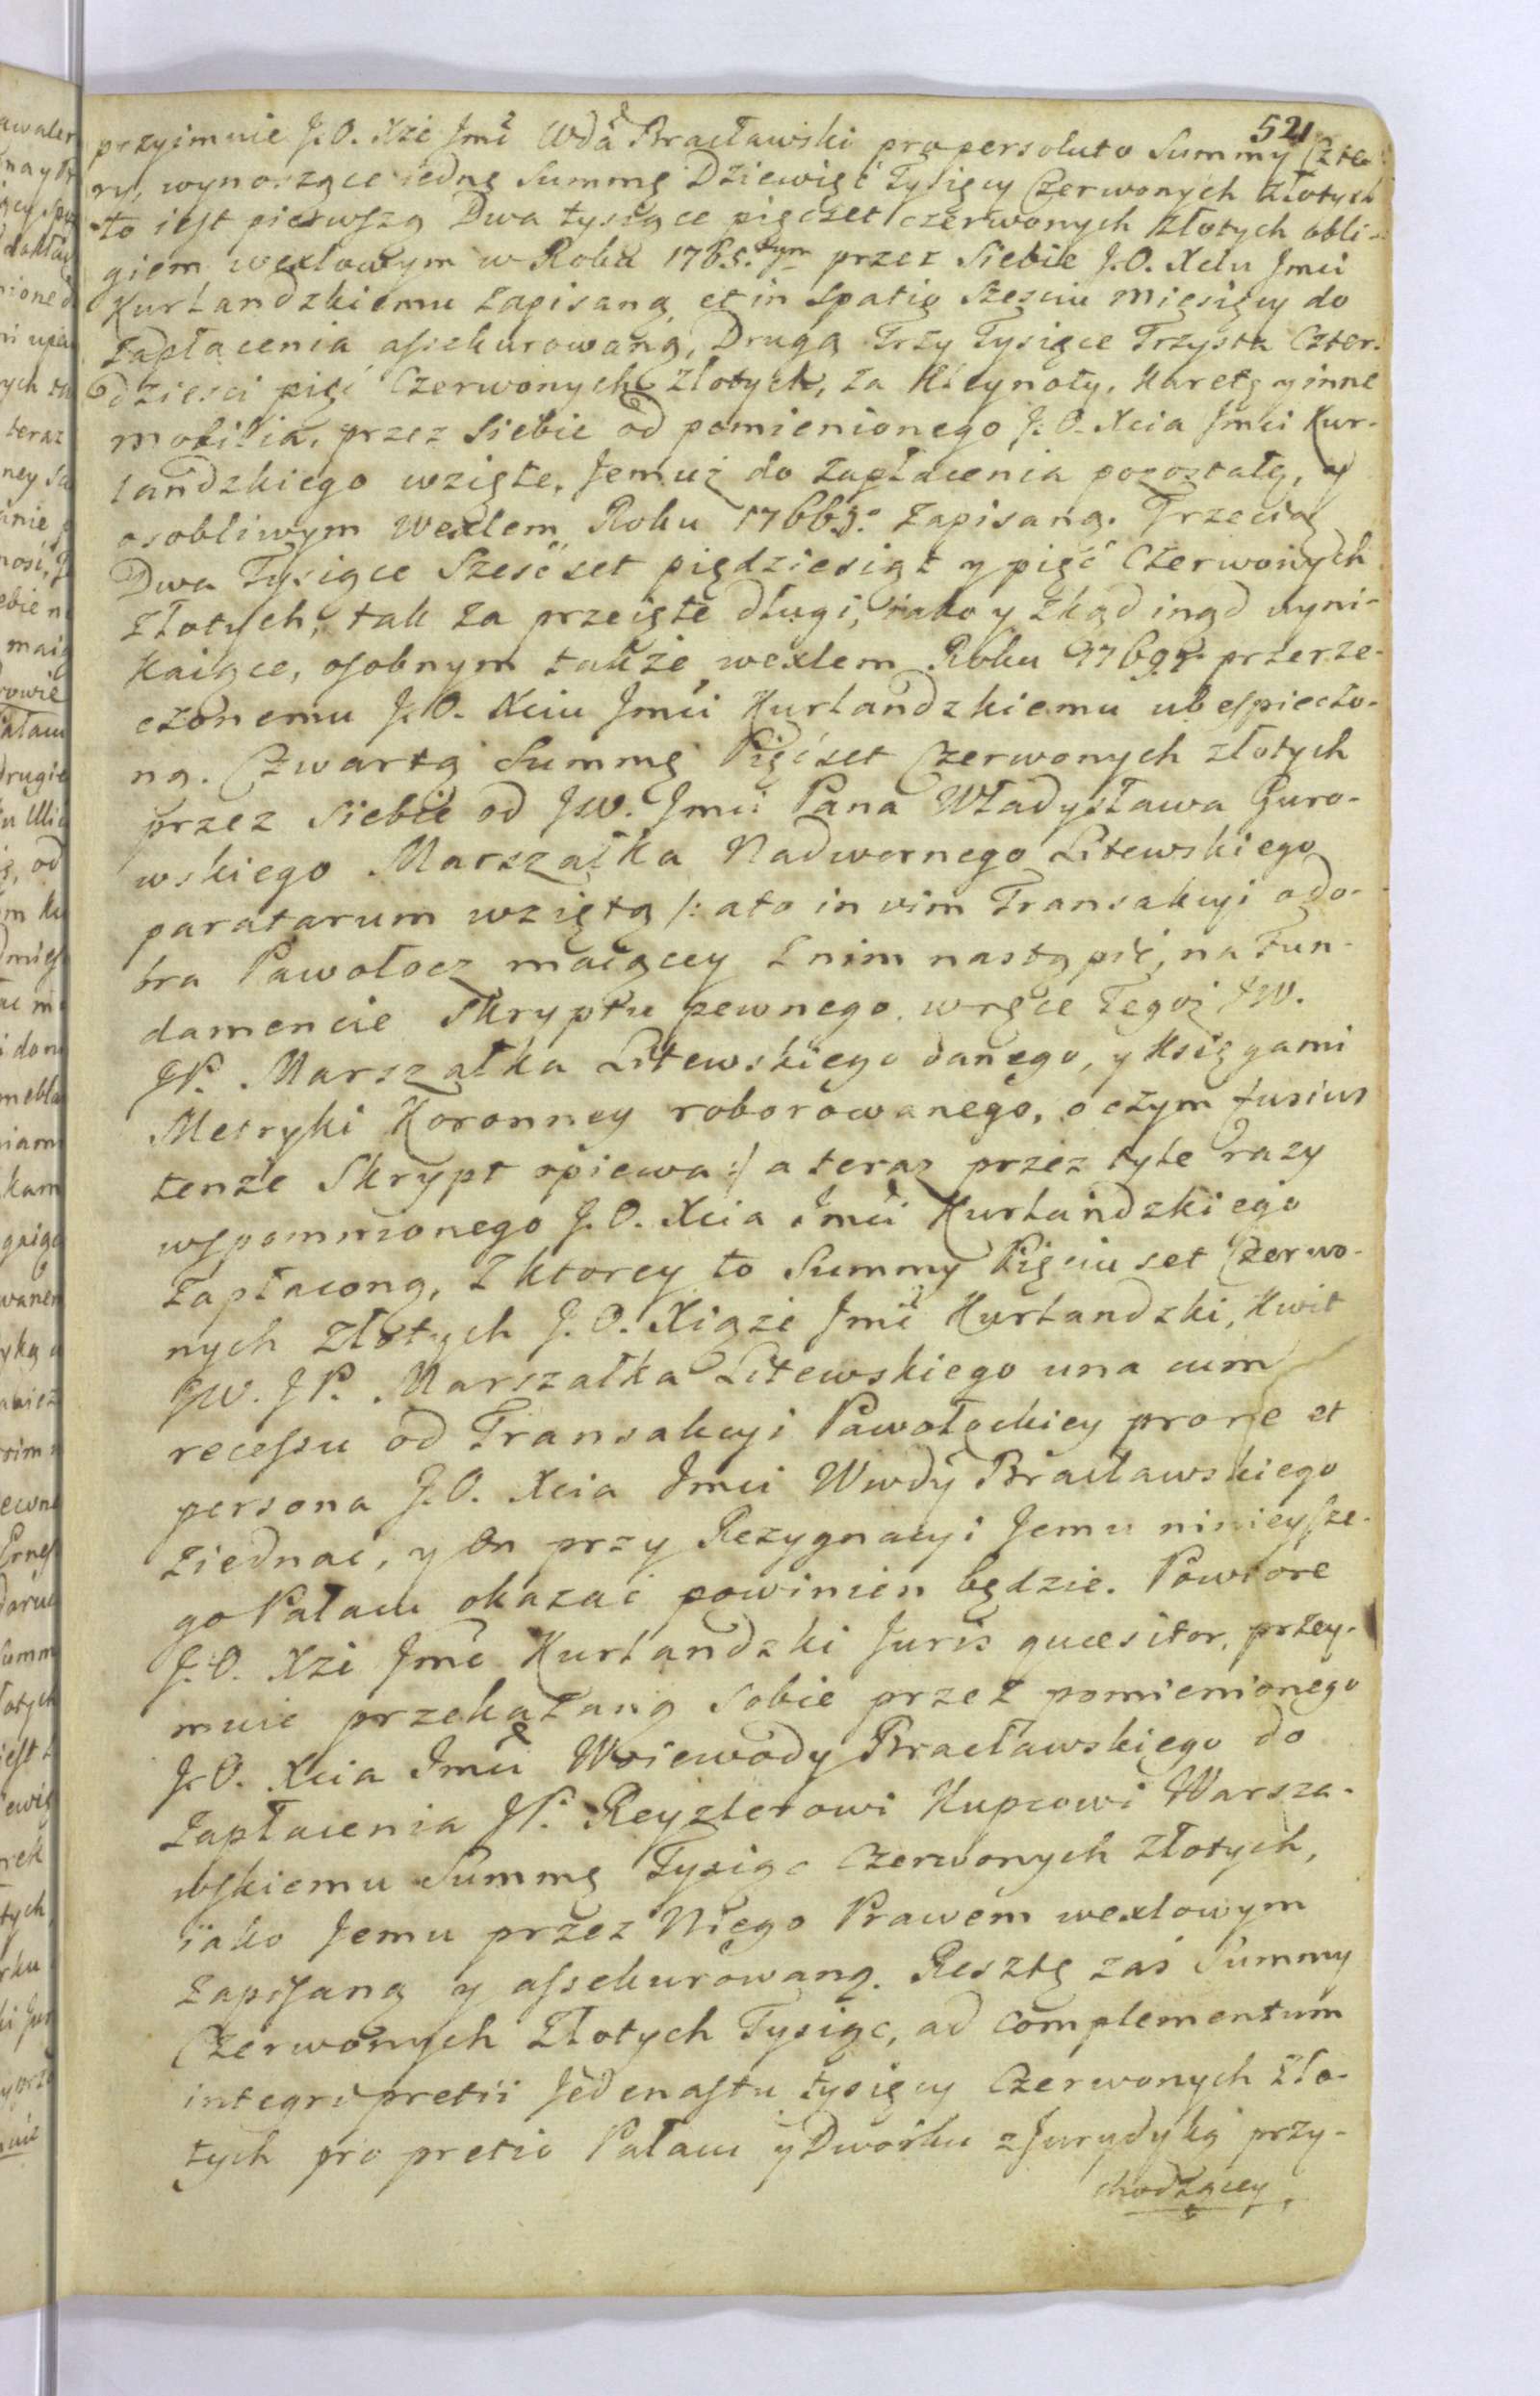 521
przyimuie J. O. Xże Jmć Wda Bracławski pro persoluto Summy Czte-
ry, wynoszące iedną Summę Dziewięć Tysięcy Czerwonych Złotych
to iest pierwszą Dwa tysiące pięćset czerwonych Złotych obli-
giem wexlowym w Roku 1765.tym przez Siebie J. O. Xciu Jmci
Kurlandzkiemu Zapisaną, et in Spatio Sześciu Miesięcy do
Zapłacenia assekurowaną, Drugą Trzy Tysiące Trzysta Czter-
dzieści pięć Czerwonych Złotych, Za Kleynoty, Karetę y inne
mobilia, przez Siebie od pomienionego J: O. Xcia Jmci Kur-
landzkiego wzięte, Jemuż do Zapłacenia pozostałą, y
osobliwym Wexlem Roku 1766g:o Zapisaną. Trzecią
Dwa Tysiące Sześćset pięćdziesiąt y pięć Czerwonych
Złotych, tak Za przeięte długi, iako y Zkąd inąd wyni-
kaiące, osobnym także wexlem Roku 1769: przerze-
czonemu J. O. Xciu Jmci Kurlandzkiemu ubespieczo-
ną. Czwartą Summę Pięćset Czerwonych złotych
przez Siebie od JW. Jmci Pana Władysława Guro-
wskiego Marszałka Nadwornego Litewskiego
paratarum wziętą /: a to in vim Transakcyi o do-
bra Pawołocz maiącey Z nim nastąpić, na Fun-
damencie Skryptu pewnego, w ręce Tegoż JW.
JP. Marszałka Litewskiego danego, y Księgami
Metryki Koronney roborowanego, o czym fusius
tenże Skrypt opiewa :/ a teraz przez tyle razy
wspomnionego J. O. Xcia Jmci Kurlandzkiego
Zapłaconą, Z ktorey to Summy Pięciu set Czerwo-
nych Złotych J. O. Xiąże Jmć Kurlandzki, Kwit
JW. JP. Marszałka Litewskiego una cum
recessu od Transakcyi Pawołockiey pro re et
persona J. O. Xcia Jmci Wwdy Bracławskiego
Ziednać, y On przy Rezygnacyi Jemu ninieysze-
go Pałacu okazać powinien będzie. Powtóre
J. O. Xże Jmć Kurlandzki Juris quaesitor, przey-
muie przekazaną Sobie przez pomienionego
J. O. Xcia Jmci Woiewody Bracławskiego do
Zapłacenia JP. Reyzlerowi Kupcowi Warsza-
wskiemu Summę Tysiąc Czerwonych Złotych,
iako Jemu przez Niego Prawem wexlowym
Zapisaną y assekurowaną. Resztę zaś Summy
Czerwonych Złotych Tysiąc, ad complementum
integri pretii Jedenastu tysięcy Czerwonych Zło-
tych pro pretio Pałacu y Dworku z Jurydyką przy-
chodzącey